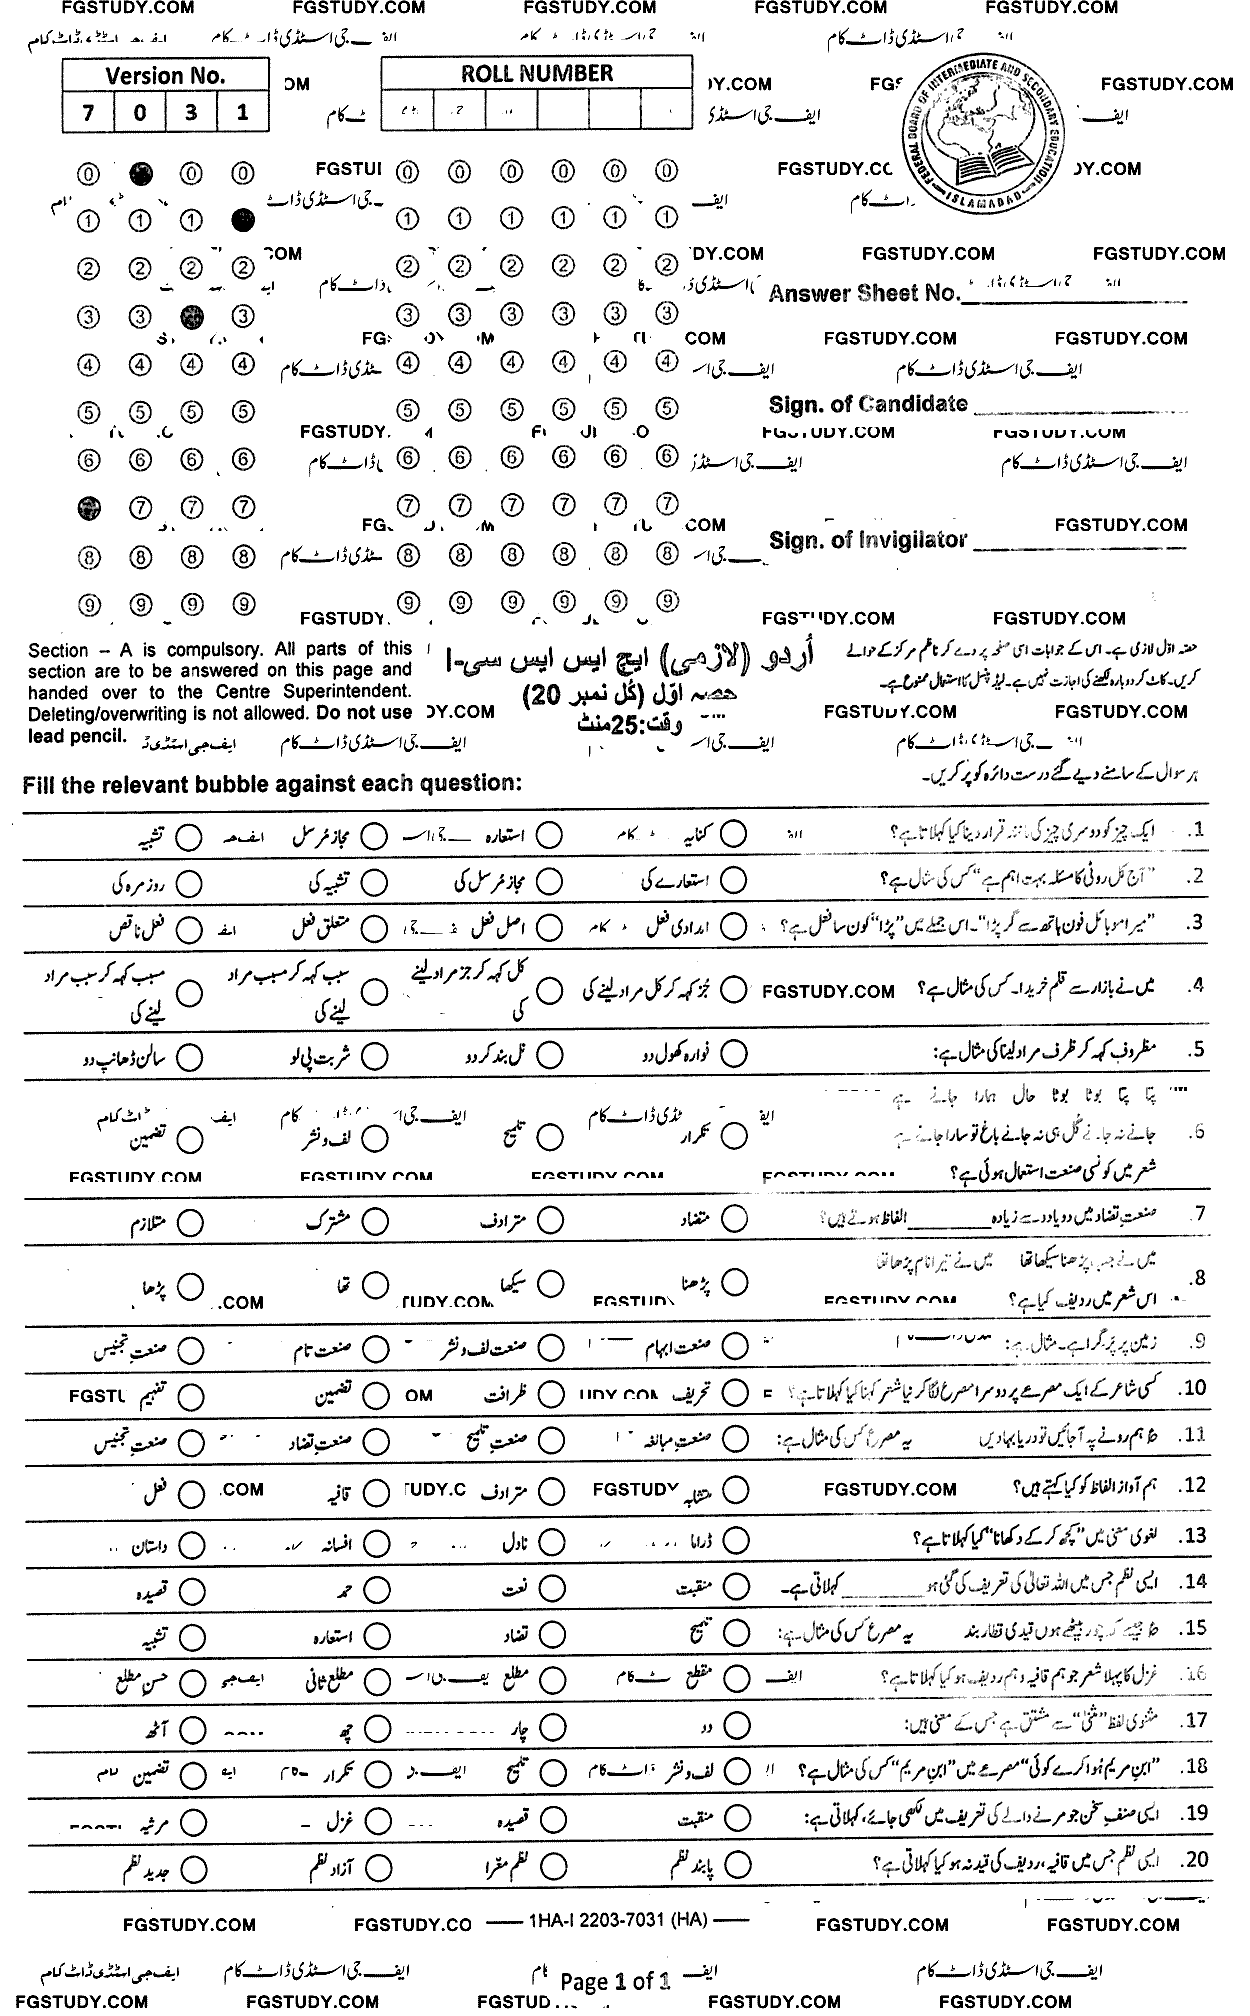 FGSTUDY.COM FGSTUDY.COM FGSTUDY.COM FGSTUDY.COM FGSTUDY.COM
Version No.
7 0 3 1
ROLL NUMBER
FEDERAL BOARD OF INTERMEDIATE AND SECONDARY EDUCATION
ISLAMABAD
0 0 0 0 0 0 0 0 0
1 1 1 1 1 1 1 1 1
2 2 2 2 2 2 2 2 2 2
Answer Sheet No.
3 3 3 3 3 3 3 3 3
4 4 4 4 4 4 4 4 4 4
5 5 5 5 5 5 5 5 5 5
Sign. of Candidate
6 6 6 6 6 6 6 6 6 6
7 7 7 7 7 7 7 7 7
8 8 8 8 8 8 8 8 8 8
Sign. of Invigilator
9 9 9 9 9 9 9 9 9 9
Section – A is compulsory. All parts of this
section are to be answered on this page and
handed over to the Centre Superintendent.
Deleting/overwriting is not allowed. Do not use
lead pencil.
اُردو (لازمی) ایچ ایس ایس سی-I
حصہ اوّل (کُل نمبر 20)
وقت:25منٹ
حصہ اوّل لازمی ہے۔ اس کے جوابات اسی صفحہ پر دے کر ناظم مرکز کے حوالے
کریں۔ کاٹ کر دوبارہ لکھنے کی اجازت نہیں ہے۔ لیڈ پنسل کا استعمال ممنوع ہے۔
Fill the relevant bubble against each question:
ہر سوال کے سامنے دیے گئے درست دائرہ کو پُر کریں۔
1. ایک چیز کو دوسری چیز کی مانند قرار دینا کیا کہلاتا ہے؟ کنایہ استعارہ مجاز مُرسل تشبیہ
2. "آج کل روٹی کا مسئلہ بہت اہم ہے" کس کی مثال ہے؟ استعارے کی مجاز مُرسل کی تشبیہ کی روزمرہ کی
3. "میرا موبائل فون ہاتھ سے گر پڑا"۔ اس جملے میں "پڑا" کون سا فعل ہے؟ امدادی فعل اصل فعل متعلق فعل فعل ناقص
4. میں نے بازار سے قلم خریدا۔ کس کی مثال ہے؟ جُز کہہ کر کل مراد لینے کی کل کہہ کر جز مراد لینے کی سبب کہہ کر مسبب مراد لینے کی مسبب کہہ کر سبب مراد لینے کی
5. مظروف کہہ کر ظرف مراد لینا کی مثال ہے: فوارہ کھول دو نل بند کر دو شربت پی لو سالن ڈھانپ دو
پتا پتا بوٹا بوٹا حال ہمارا جانے ہے
6. جانے نہ جانے گُل ہی نہ جانے باغ تو سارا جانے ہے تکرار تلمیح لف و نشر تضمین
شعر میں کونسی صنعت استعمال ہوئی ہے؟
7. صنعتِ تضاد میں دو یا دو سے زیادہ ________ الفاظ ہوتے ہیں؟ متضاد مترادف مشترک متلازم
میں نے جب پڑھنا سیکھا تھا میں نے تیرا نام پڑھا تھا
8. اس شعر میں ردیف کیا ہے؟ پڑھنا سیکھا تھا پڑھا
9. زمین پر پَر گرا ہے۔ مثال ہے: صنعت ابہام صنعت لف و نشر صنعت تام صنعتِ تجنیس
10. کسی شاعر کے ایک مصرعے پر دوسرا مصرع لگا کر نیا شعر کہنا کیا کہلاتا ہے؟ تحریف ظرافت تضمین تفہیم
11. ع ہم رونے پہ آجائیں تو دریا بہادیں یہ مصرع کس کی مثال ہے: صنعتِ مبالغہ صنعتِ تلمیح صنعتِ تضاد صنعتِ تجنیس
12. ہم آواز الفاظ کو کیا کہتے ہیں؟ متشابہ مترادف قافیہ فعل
13. لغوی معنی میں "کچھ کر کے دکھانا" کیا کہلاتا ہے؟ ڈراما ناول افسانہ داستان
14. ایسی نظم جس میں اللہ تعالیٰ کی تعریف کی گئی ہو ________ کہلاتی ہے۔ منقبت نعت حمد قصیدہ
15. ع جیسے کہ چور بیٹھے ہوں قیدی قطار بند یہ مصرع کس کی مثال ہے: تلمیح تضاد استعارہ تشبیہ
16. غزل کا پہلا شعر جو ہم قافیہ و ہم ردیف ہو کیا کہلاتا ہے؟ مقطع مطلع مطلع ثانی حسنِ مطلع
17. مثنوی لفظ "مثنیٰ" سے مشتق ہے جس کے معنی ہیں: دو چار چھ آٹھ
18. "ابنِ مریم ہُوا کرے کوئی" مصرعے میں "ابنِ مریم" کس کی مثال ہے؟ لف و نشر تلمیح تکرار تضمین
19. ایسی صنفِ سخن جو مرنے والے کی تعریف میں لکھی جائے، کہلاتی ہے: منقبت قصیدہ غزل مرثیہ
20. ایسی نظم جس میں قافیہ، ردیف کی قید نہ ہو کیا کہلاتی ہے؟ پابند نظم نظم معرّا آزاد نظم جدید نظم
FGSTUDY.COM FGSTUDY.CO — 1HA-I 2203-7031 (HA) — FGSTUDY.COM FGSTUDY.COM
ایف جی اسٹڈی ڈاٹ کام ایف جی اسٹڈی ڈاٹ کام Page 1 of 1 ایف جی اسٹڈی ڈاٹ کام
FGSTUDY.COM FGSTUDY.COM FGSTUD FGSTUDY.COM FGSTUDY.COM